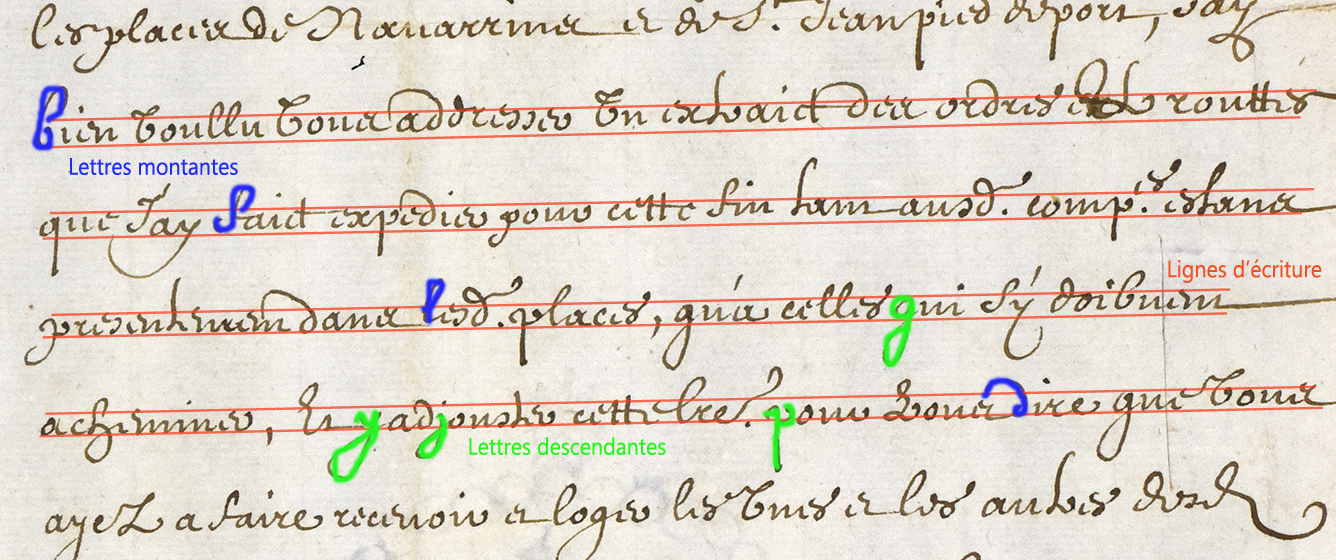 les places de Navarrins et de St. Jean pied de port, Jay
bien voullu vous addresser Un extraict des ordres et routtes
Lettres montantes
que J'ay faict expedier pour cette fin tant ausd. comp.es estans
Lignes d'écriture
presentement dans lesd. places, qu'a celles qui s'y doibuent
acheminer, Et y adjouster cette lre. pour vous dire que vous
Lettres descendantes
ayez a faire recevoir et loger les Unes et les autres desd